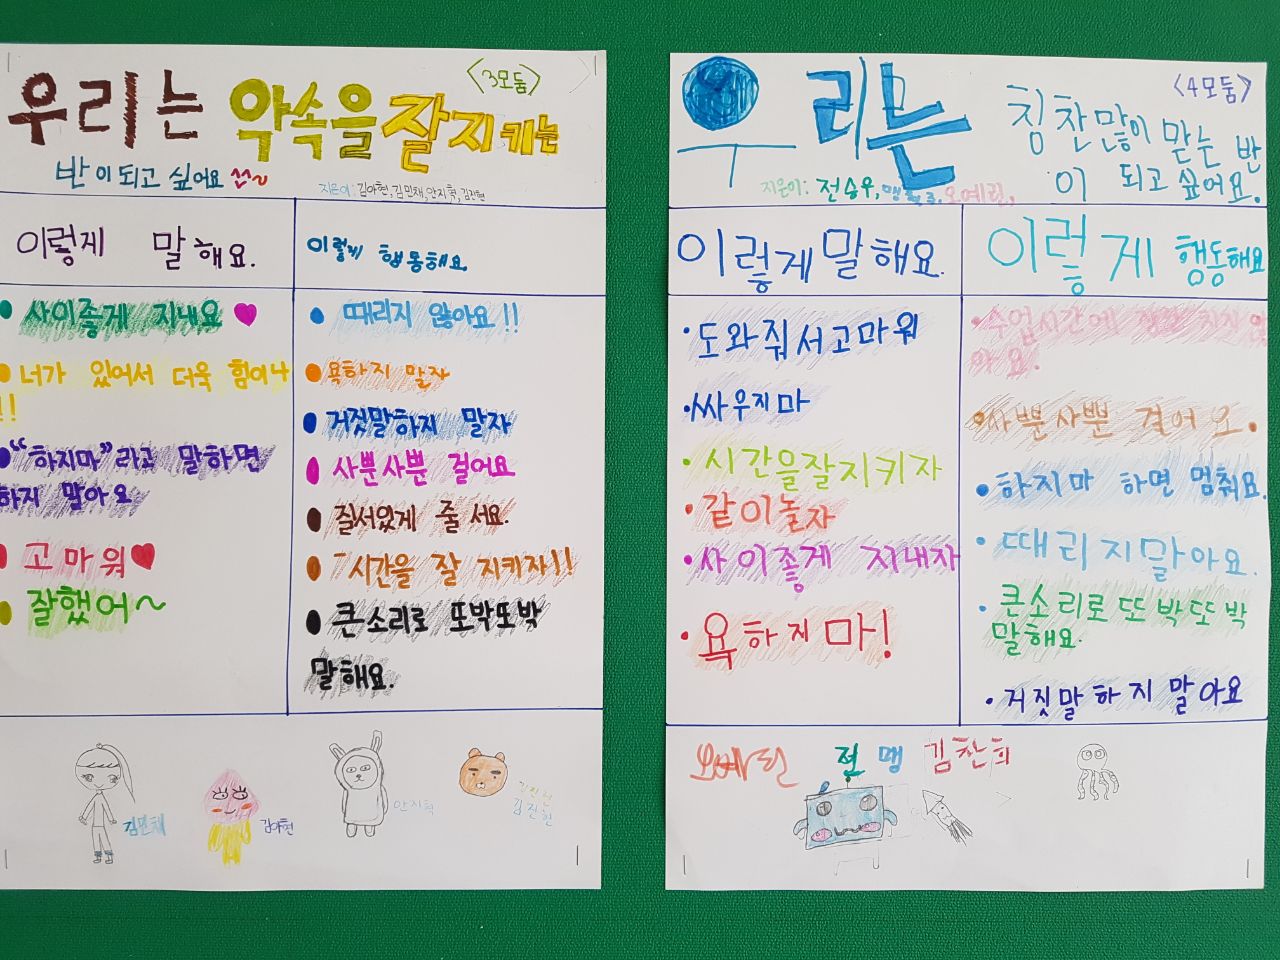 <3모둠>
우리는 약속을 잘 지키는
반이 되고 싶어요 ^^~
지은이: 김아현, 김민채, 안지혁, 김진현
이렇게 말해요.
이렇게 행동해요.
사이좋게 지내요
너가 있어서 더욱 힘이나
!!
"하지마"라고 말하면
하지 말아요
고마워
잘했어~
때리지 않아요!!
욕하지 말자
거짓말하지 말자
사뿐사뿐 걸어요
질서있게 줄 서요.
시간을 잘 지키자!!
큰소리로 또박또박
말해요.
김민채
김아현
안지혁
김진현
김진현
<4모둠>
우리는 칭찬많이 받는 반
이 되고 싶어요.
지은이: 전승우, 오예린,
이렇게 말해요.
이렇게 행동해요
도와줘서고마워
싸우지마
시간을잘지키자
같이놀자
사이좋게 지내자
욕하지마!
수업시간에 장난 치지 않
아요.
사뿐사뿐 걸어요.
하지마 하면 멈춰요.
때리지말아요.
큰소리로또박또박
말해요.
거짓말하지말아요
전 맹 김찬희